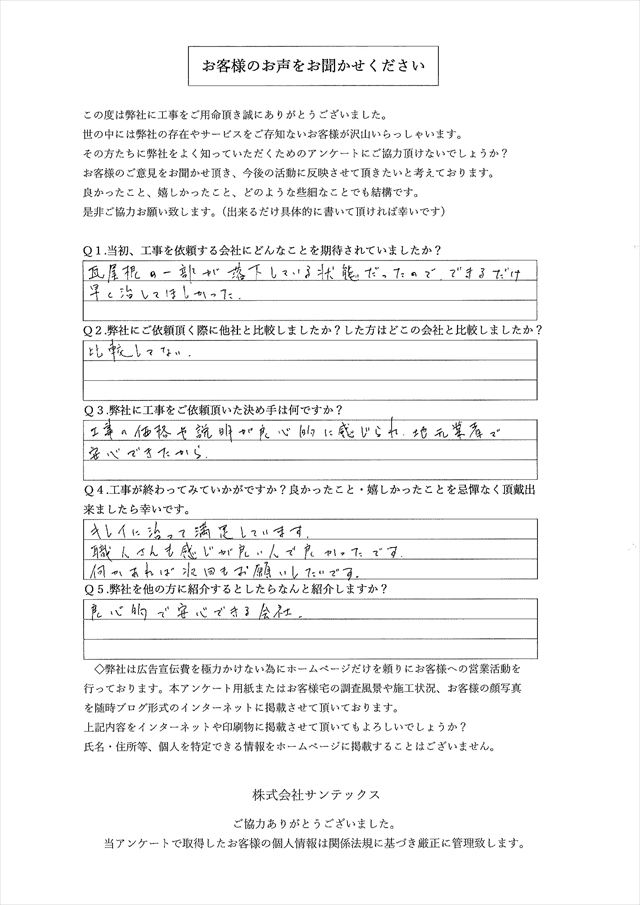 お客様のお声をお聞かせください
この度は弊社に工事をご用命頂き誠にありがとうございました。
世の中には弊社の存在やサービスをご存知ないお客様が沢山いらっしゃいます。
その方たちに弊社をよく知っていただくためのアンケートにご協力頂けないでしょうか？
お客様のご意見をお聞かせ頂き、今後の活動に反映させて頂きたいと考えております。
良かったこと、嬉しかったこと、どのような些細なことでも結構です。
是非ご協力お願い致します。（出来るだけ具体的に書いて頂ければ幸いです）
Ｑ１.当初、工事を依頼する会社にどんなことを期待されていましたか？
瓦屋根の一部が落下している状態だったので、できるだけ
早く治してほしかった。
Ｑ２.弊社にご依頼頂く際に他社と比較しましたか？した方はどこの会社と比較しましたか？
比較してない。
Ｑ３.弊社に工事をご依頼頂いた決め手は何ですか？
工事の価格や説明が良心的に感じられ、地元業者で
安心できたから。
Ｑ４.工事が終わってみていかがですか？良かったこと・嬉しかったことを忌憚なく頂戴出
来ましたら幸いです。
キレイに治って満足しています。
職人さんも感じが良い人で良かったです。
何かあれば次回もお願いしたいです。
Ｑ５.弊社を他の方に紹介するとしたらなんと紹介しますか？
良心的で安心できる会社。
◇弊社は広告宣伝費を極力かけない為にホームページだけを頼りにお客様への営業活動を
行っております。本アンケート用紙またはお客様宅の調査風景や施工状況、お客様の顔写真
を随時ブログ形式のインターネットに掲載させて頂いております。
上記内容をインターネットや印刷物に掲載させて頂いてもよろしいでしょうか？
氏名・住所等、個人を特定できる情報をホームページに掲載することはございません。
株式会社サンテックス
ご協力ありがとうございました。
当アンケートで取得したお客様の個人情報は関係法規に基づき厳正に管理致します。